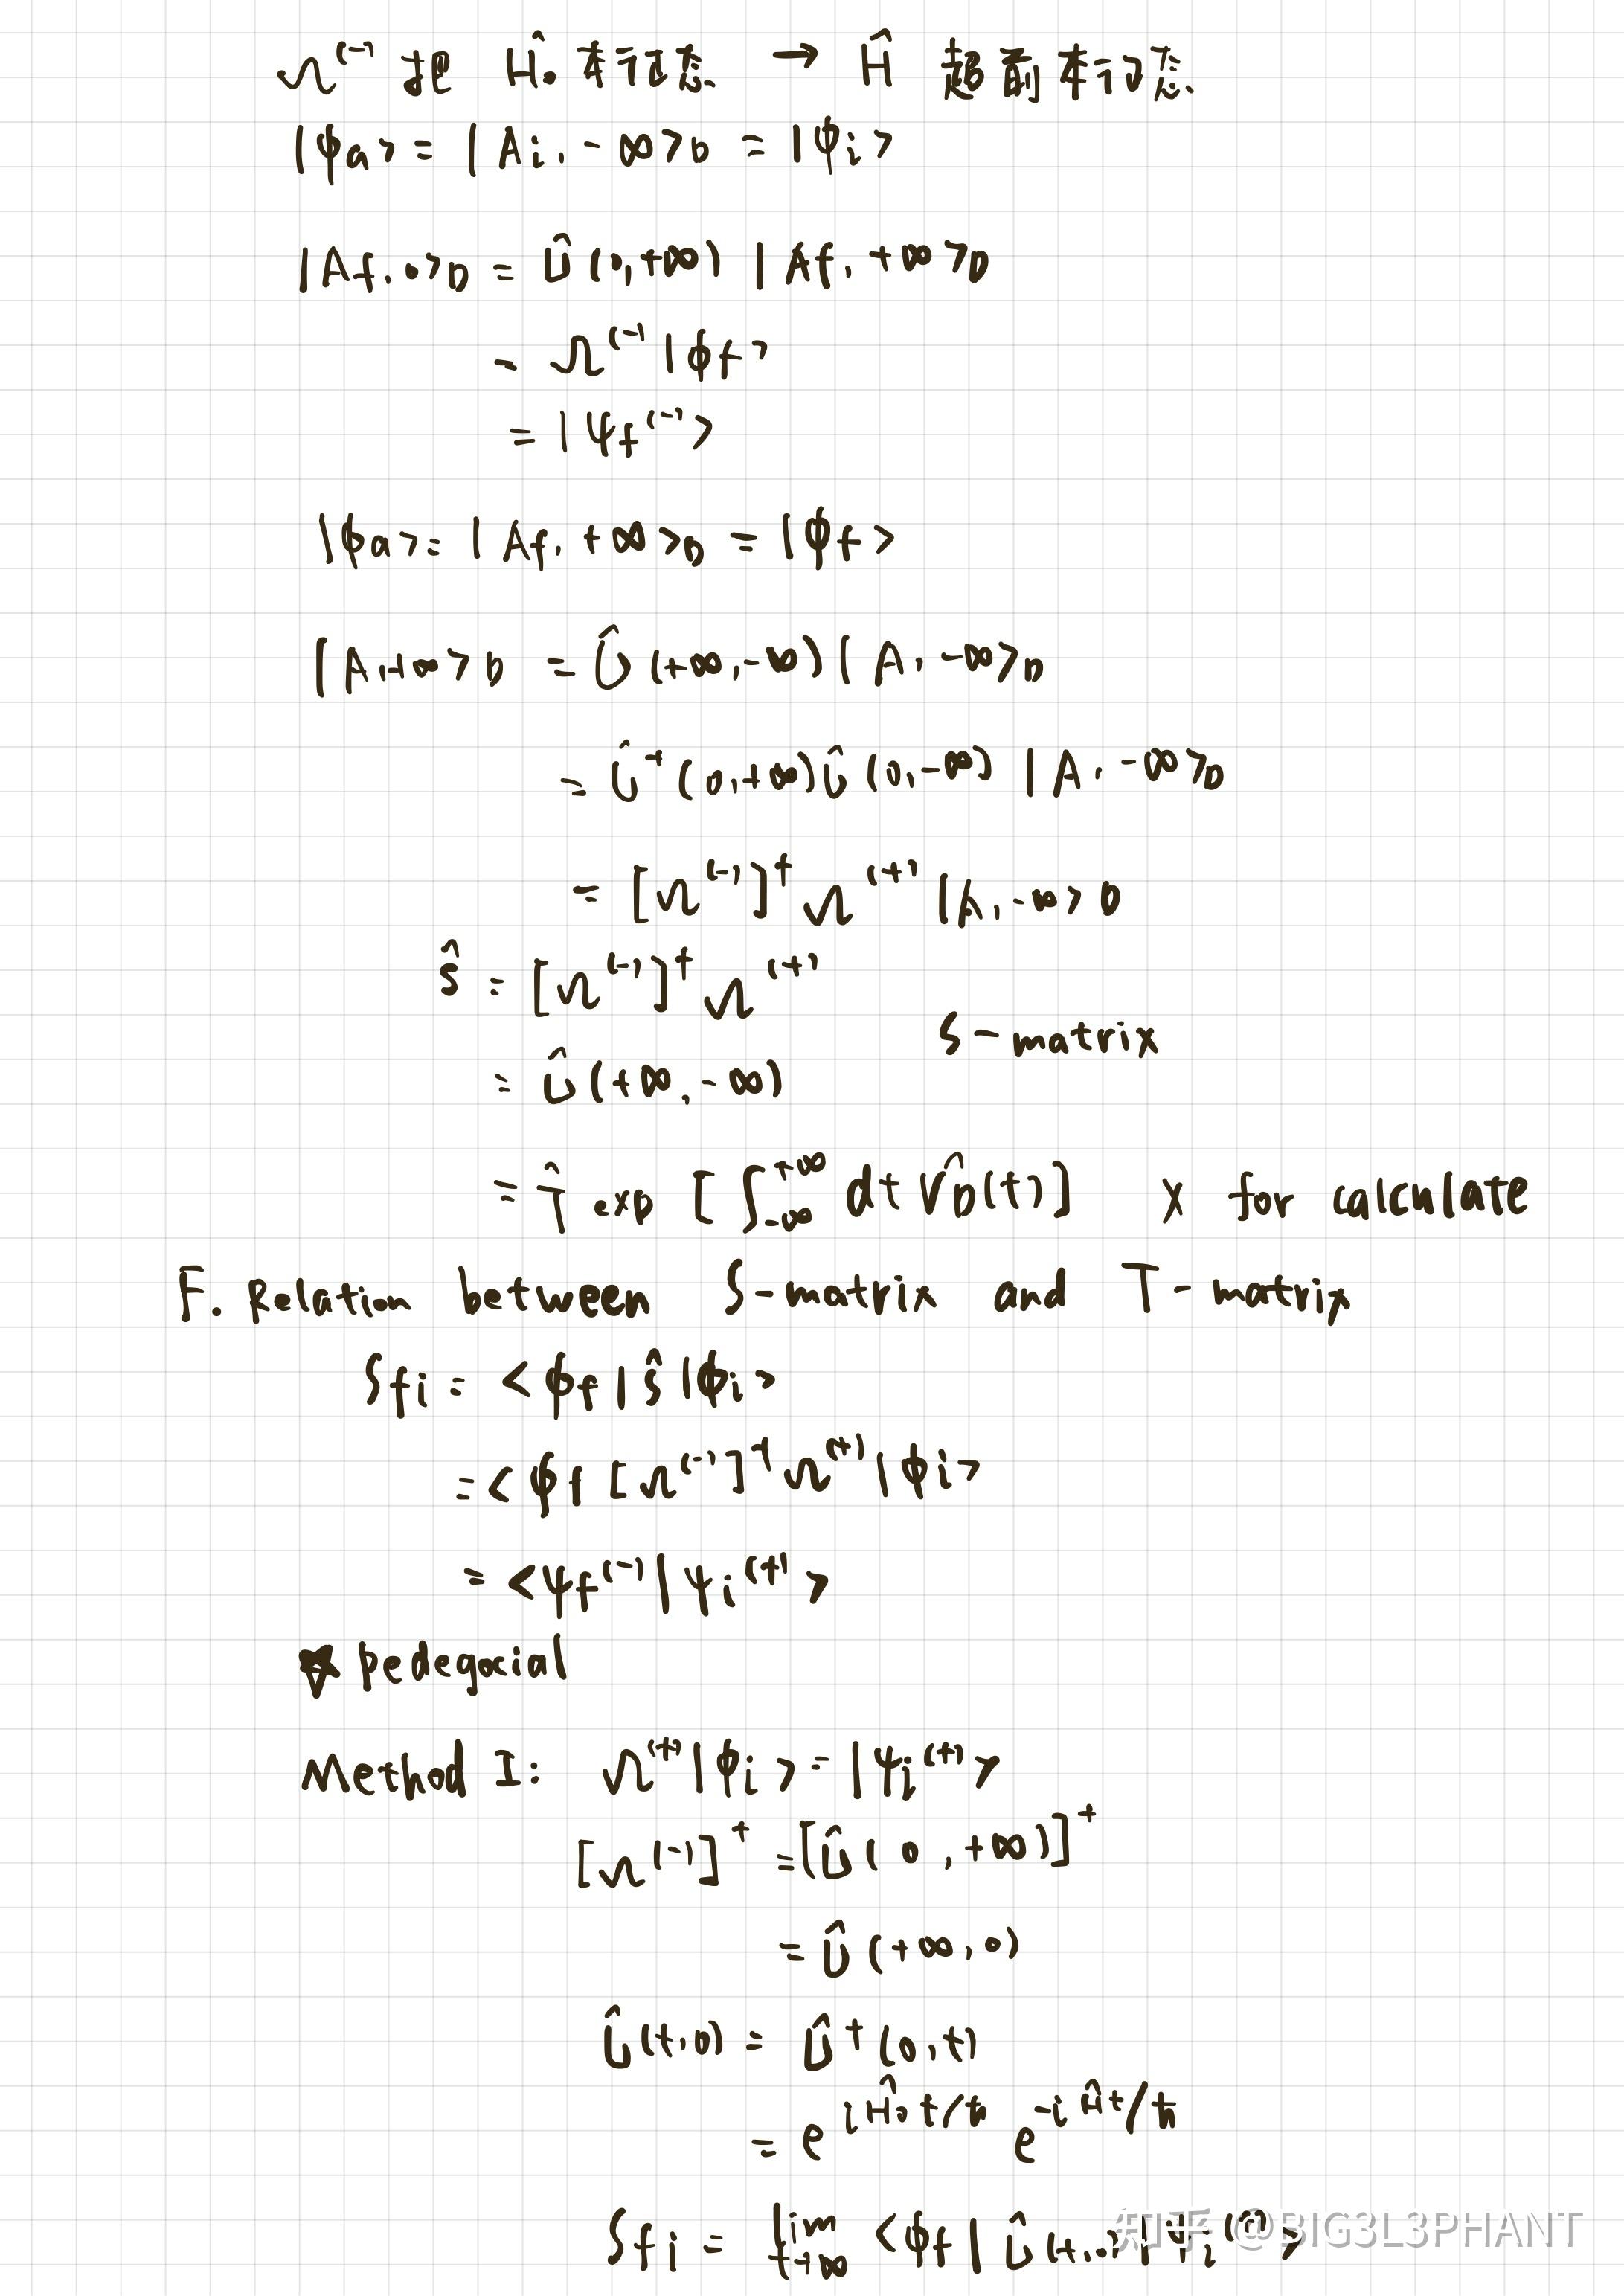 Ω^(-) 把 Ĥ₀ 本征态 → Ĥ 超前本征态.
|ϕa> = |Ai, -∞>D = |ϕi>
|Af, 0>D = Û(0,+∞) |Af, +∞>D
= Ω^(-) |ϕf>
= |ψf^(-)>
|ϕa> = |Af, +∞>D = |ϕf>
|A,+∞>D = Û(+∞,-∞) |A, -∞>D
= Û^†(0,+∞) Û(0,-∞) |A, -∞>D
= [Ω^(-)]^† Ω^(+) |A, -∞>D
Ŝ = [Ω^(-)]^† Ω^(+)
S-matrix
= Û(+∞,-∞)
= T̂ exp [∫_{-∞}^{+∞} dt V̂D(t)] X for calculate
F. Relation between S-matrix and T-matrix
Sfi = <ϕf|Ŝ|ϕi>
= <ϕf [Ω^(-)]^† Ω^(+) |ϕi>
= <ψf^(-)|ψi^(+)>
☆ pedegocial
Method I: Ω^(+)|ϕi> = |ψi^(+)>
[Ω^(-)]^† = [Û(0,+∞)]^†
= Û(+∞,0)
Û(t,0) = Û^†(0,t)
= e^{iĤ₀t/ħ} e^{-iĤt/ħ}
Sfi = lim_{t→∞} <ϕf|Û(t,0)|ψi^(+)>
知乎 @BIG3L3PHANT